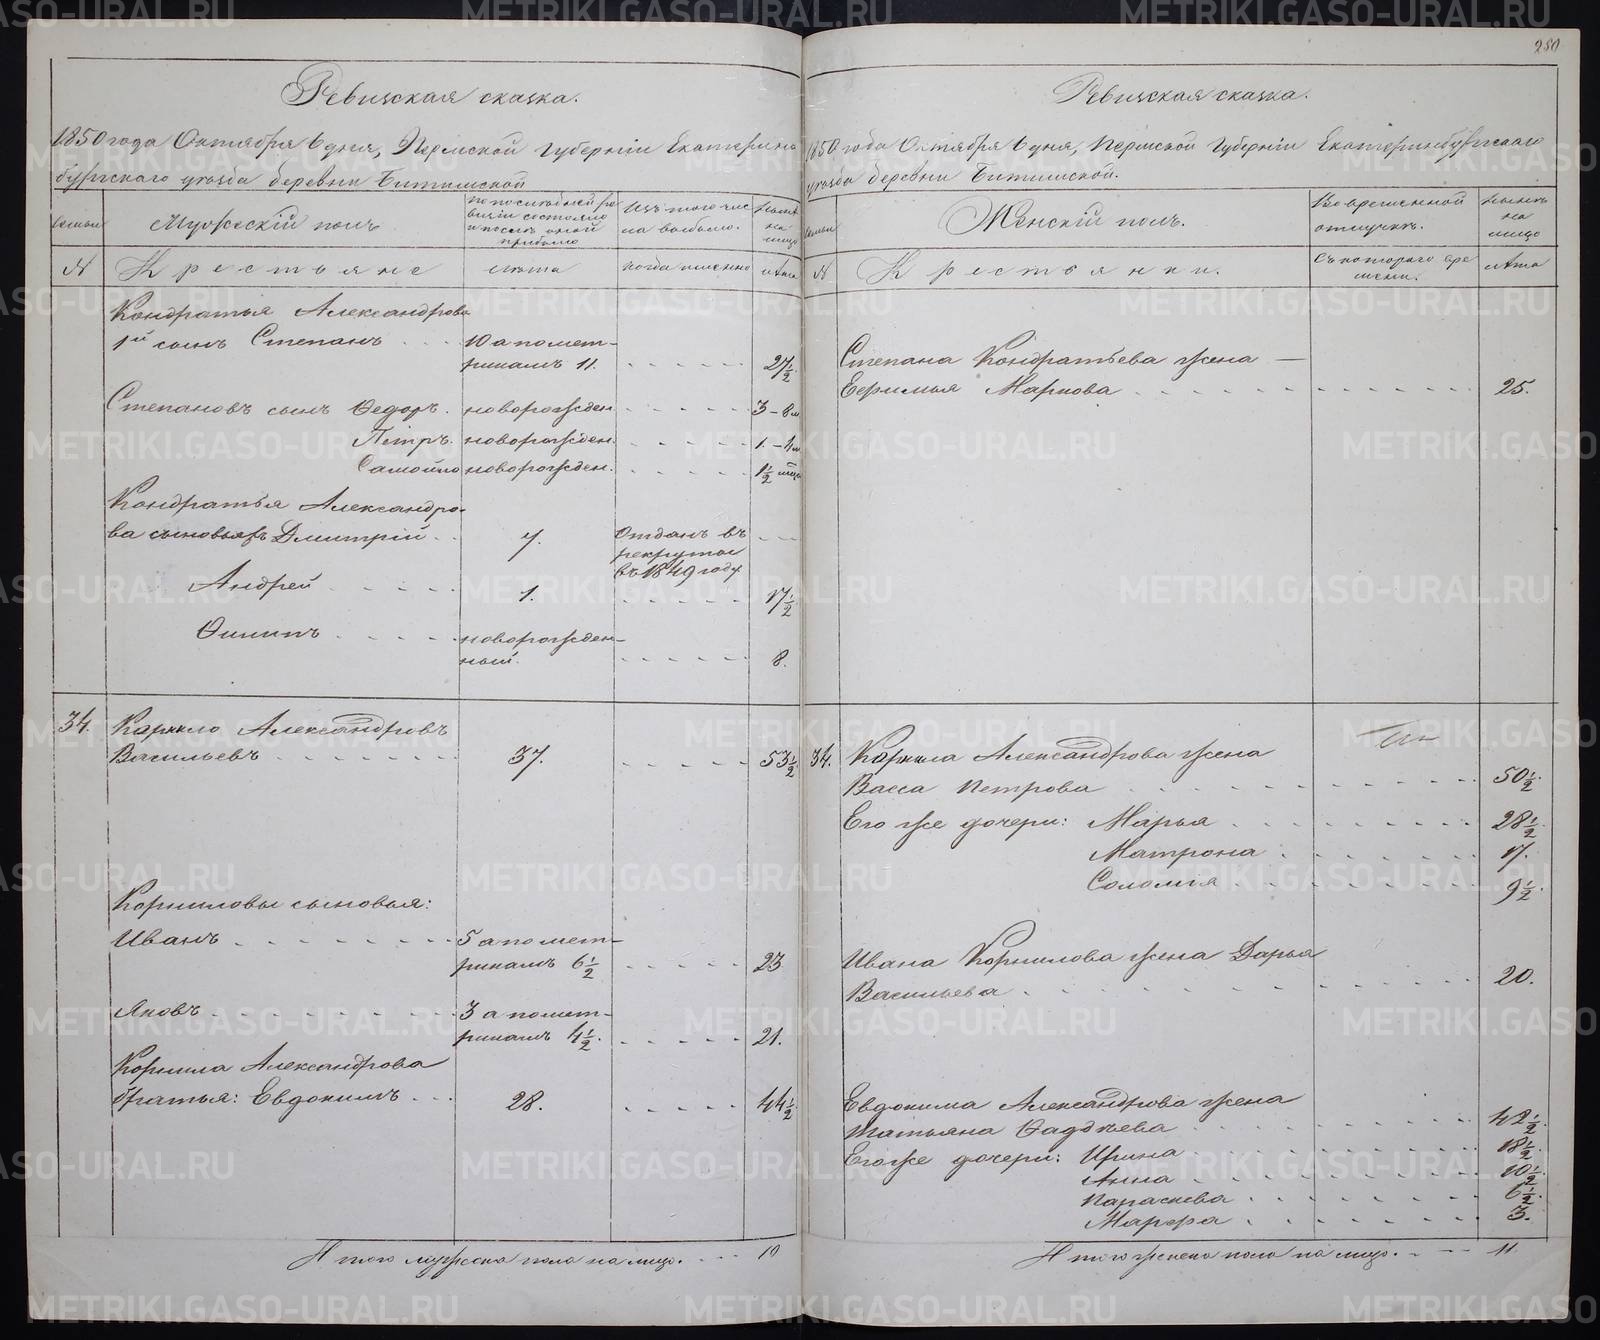 280
Ревизская сказка.
1850 года Октября 6 дня, Пермской Губерніи Екатерин
бургскаго уѣзда деревни Битимской
Семьи
Мужескій полъ
По последней ре
визіи состояло
и послѣ оной
прибыло
Изъ того чис
ла выбыло.
Нынѣ
на
лицо
№
Крестьяне
лѣта
когда именно
лѣта
Кондратья Александрова
1й сынъ Степанъ
10 а по мет-
рикамъ 11.
27 1/2
Степановъ сынъ Ѳедоръ. новорожден. 3 - 8 м
Петръ. новорожден. 1. - 4 м
Самойло новорожден. 1 1/2 мѣца
Кондратья Александро-
ва сыновья Дмитрій
7.
Отданъ въ
рекруты
въ 1849 году
Андрей 1. 17 1/2
Филипъ новорожден-
ный. 8.
34. Карнило Александровъ
Васильевъ 37. 53 1/2
Корниловы сыновья:
Иванъ 5 а по мет-
рикамъ 6 1/2 23
Яковъ 3 а по мет-
рикамъ 4 1/2. 21.
Корнила Александрова
братья: Евдокимъ 28. 44 1/2
Итого мужеска пола на лицо. 10
Ревизская сказка.
1850 года Октября 6 дня, Пермской Губерніи Екатеринбургскаго
уѣзда деревни Битимской.
Семьи
Женскій полъ.
Во временной
отлучкѣ.
Нынѣ
на
лицо
№
Крестьянки.
Съ котораго вре
мени.
лѣта
Степана Кондратьева жена —
Ефимья Маркова 25.
34. Карнила Александрова жена
Васса Петрова 50 1/2.
Его же дочери: Марья 28 1/2.
Матрона 17.
Соломія 9 1/2.
Ивана Корнилова жена Дарья
Васильева 20.
Евдокима Александрова жена
Татьяна Фадѣева 42 1/2.
Его же дочери: Ирина 18 1/2.
Анна 10 1/2.
Параскева 6 1/2.
Марфа 3.
Итого женска пола на лицо. 11
METRIKI.GASO-URAL.RU